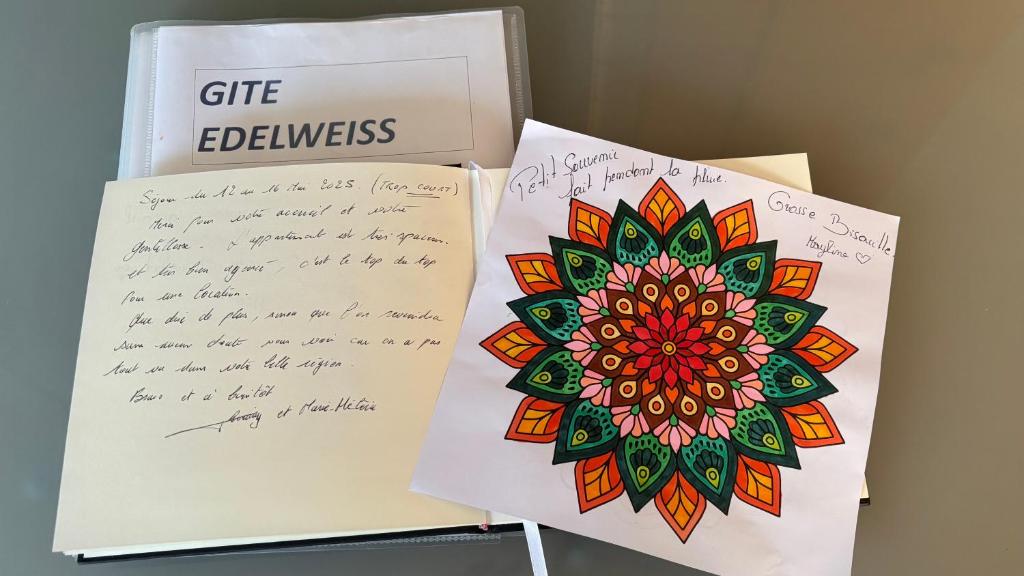 GITE
EDELWEISS
Séjour du 12 au 16 Mai 2025. (Trop court)
Merci pour votre accueil et votre
gentillesse. L'appartement est très spacieux
et très bien agencé, c'est le top du top
pour une location.
Que dire de plus, sinon que l'on reviendra
sans aucun doute vous voir car on a pas
tout vu dans votre belle région.
Bises et à bientôt
et Marie-Hélène
Petit Souvenir
fait pendant la pluie.
Grosse Bisouille